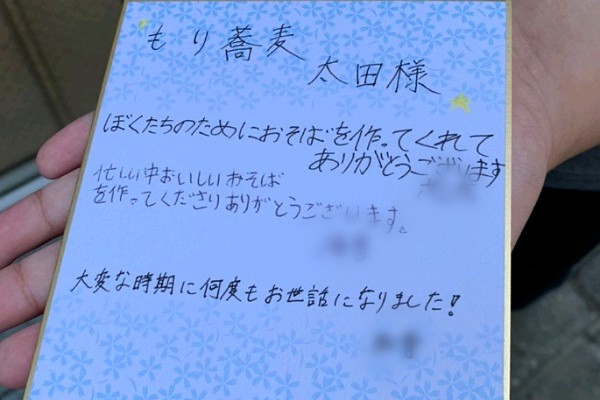 もり蕎麦
太田様
ぼくたちのためにおそばを作ってくれて
ありがとうございます
忙しい中おいしいおそば
を作ってくださりありがとうございます。
大変な時期に何度もお世話になりました!